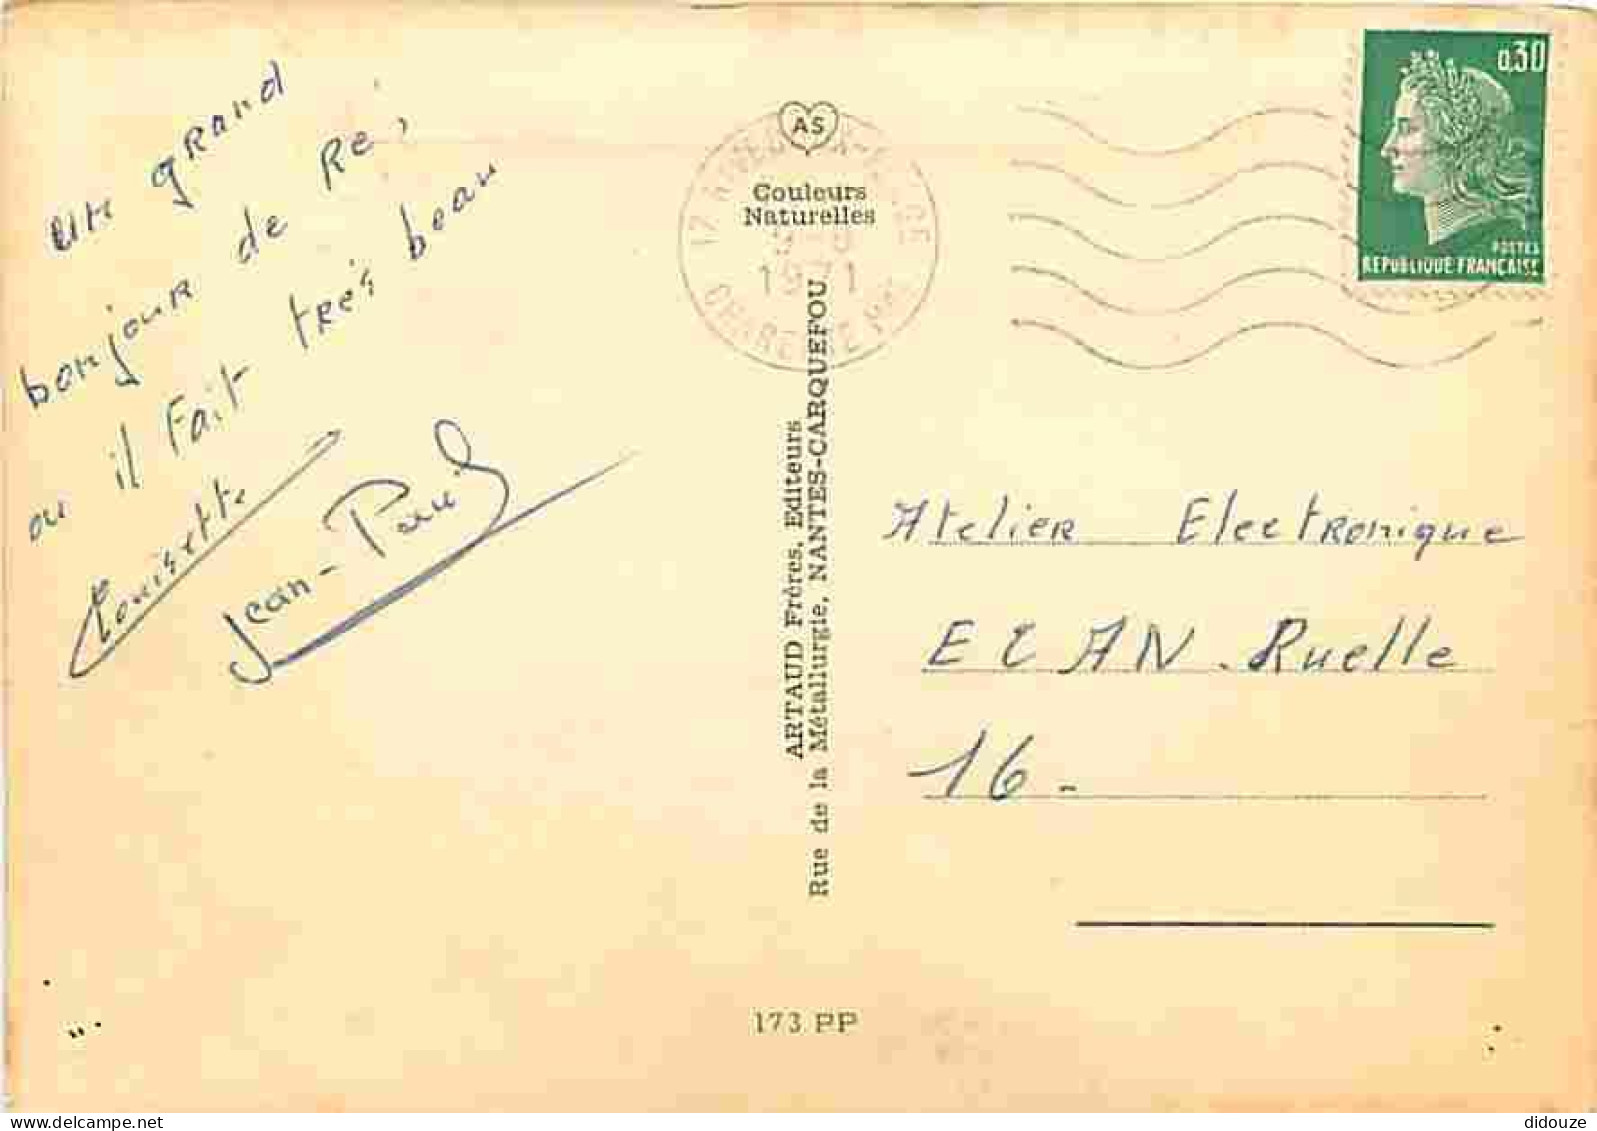 un grand
bonjour de Ré,
ou il fait très beau
Louisette
Jean-Paul
AS
Couleurs
Naturelles
ARTAUD Frères, Editeurs
Rue de la Métallurgie, NANTES-CARQUEFOU
173 PP
17
1971
CHARENTE Mme
0,30
POSTES
REPUBLIQUE FRANCAISE
Atelier Electronique
ECAN. Ruelle
16-
delcampe.net
didouze